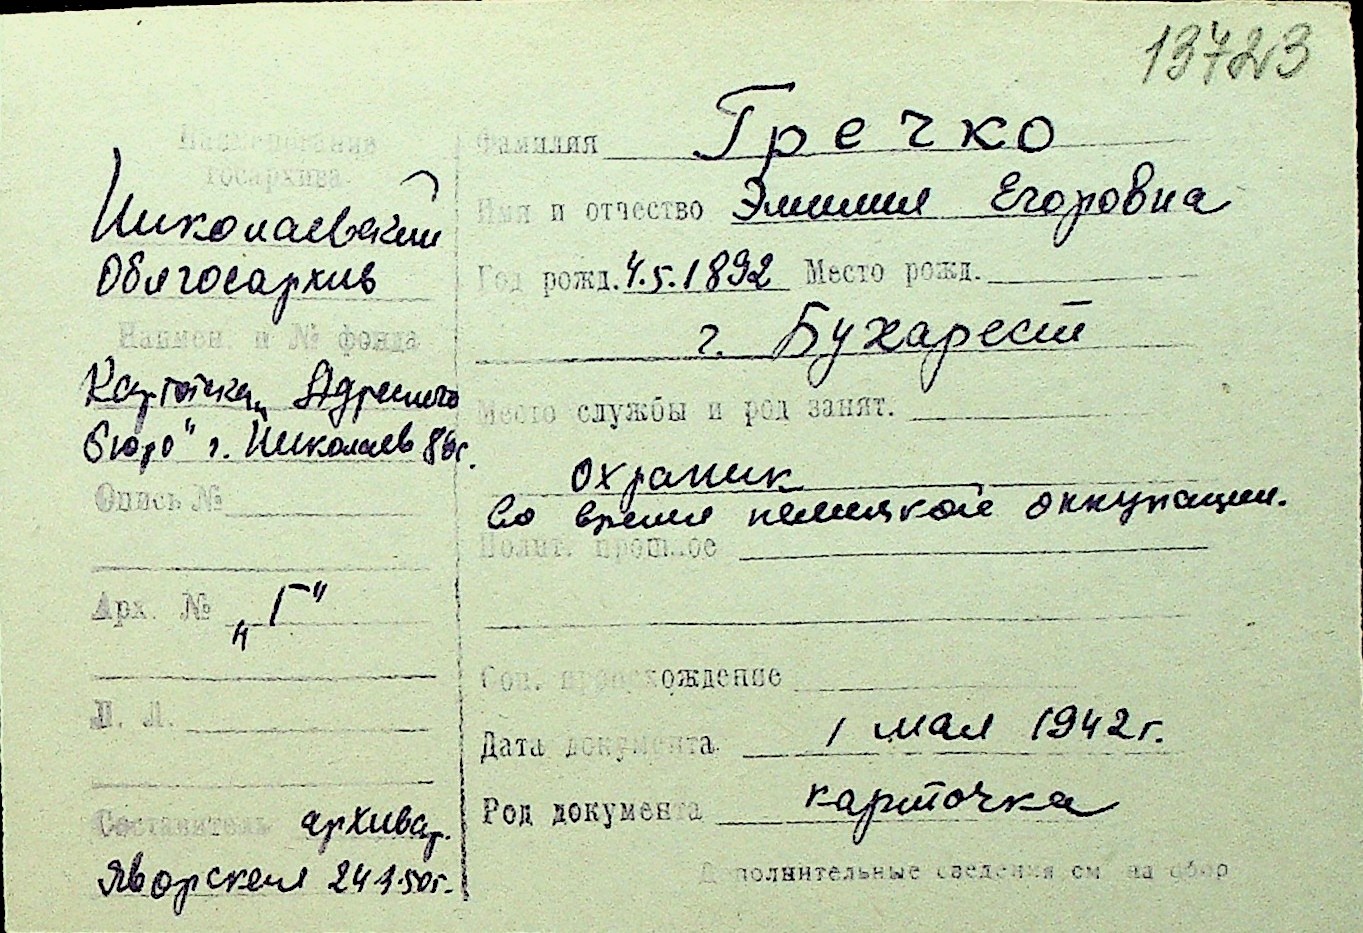 13723
Наименование
госархива
Николаевский
Облгосархив
Наимен и № фонда
Картотека „Адресного
бюро" г. Николаев
Опись №
Арх. № „Г"
Л. Л.
Составитель архивар.
Яворская 24.1.50г.
Фамилия Гречко
Имя и отчество Эмилия Егоровна
Год рожд. 4.5.1892 Место рожд.
г. Бухарест
Место службы и род занят.
охраник
во время немецкой оккупации.
Полит. прошлое
Соц. происхождение
Дата документа 1 мая 1942г.
Род документа карточка
Дополнительные сведения см на обор